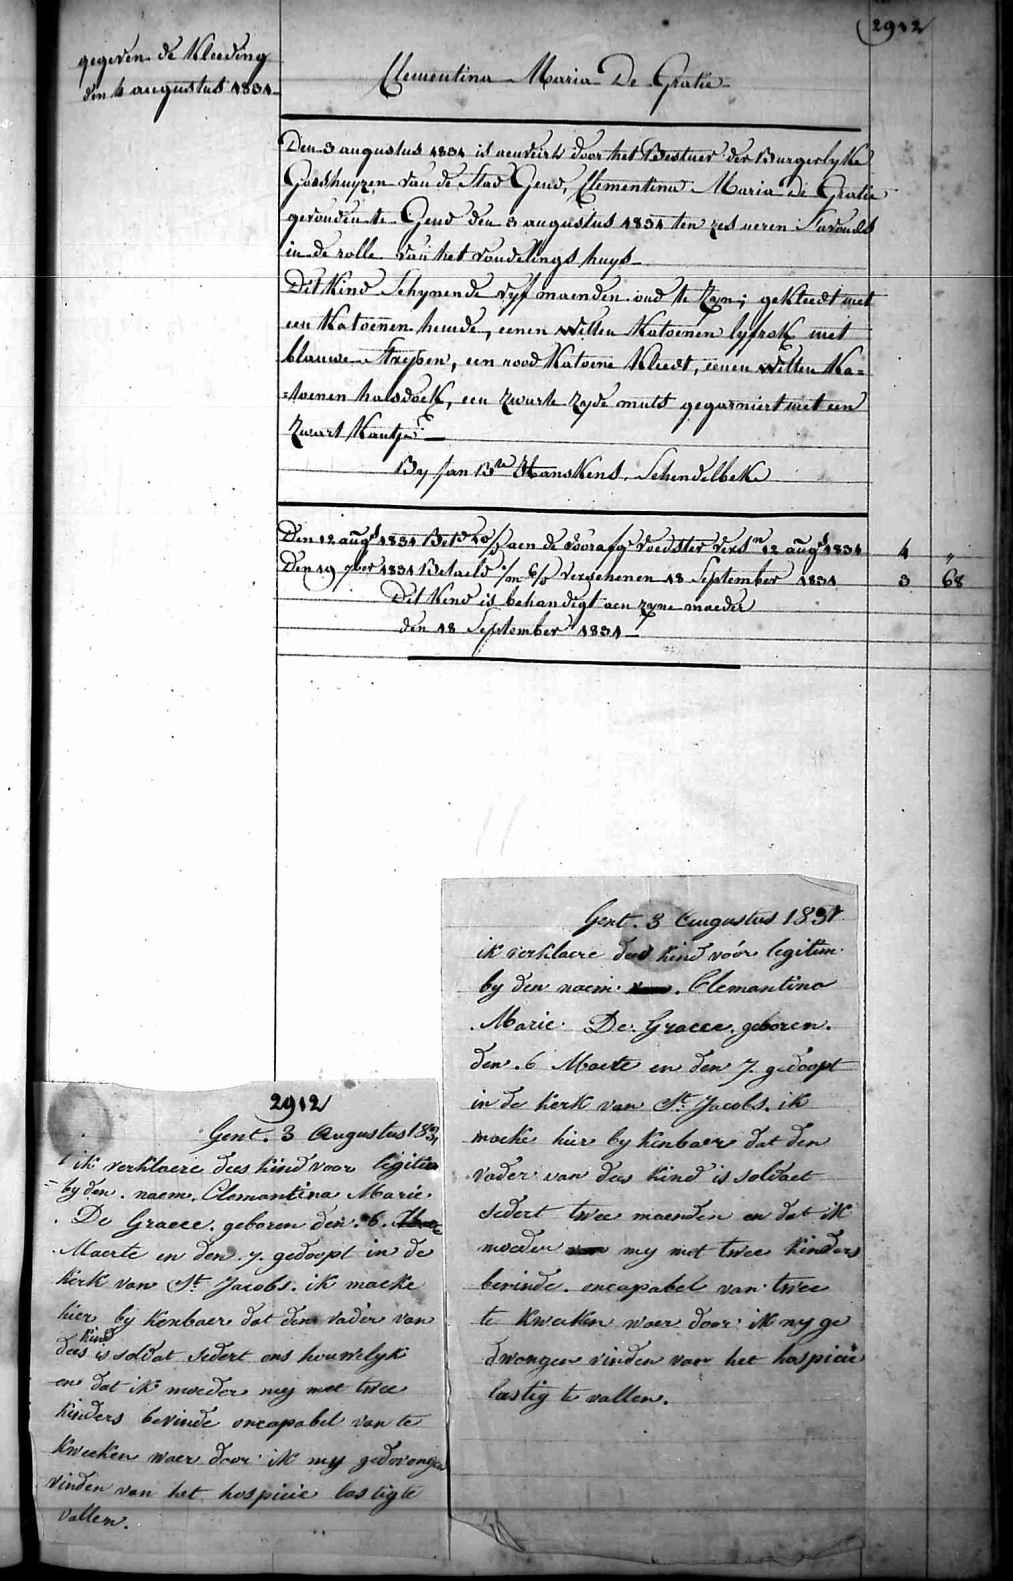 2912
gegeven de Kleeding
den 4 augustus 1831
Clementina Maria De Gratie
Den 3 augustus 1831 is aenveird door het Bestuer der Burgerlyke
Godshuyzen van de Stad Gend, Clementina Maria De Gratie
gevonden te Gend den 3 augustus 1831 ten zes ueren Savonds
in de rolle van het vondelings huys
Dit Kind Schynende vyf maenden oud te Zyn; gekleedt met
een Katoenen hemde, eenen Witten Katoenen lyfrok met
blauwe Strepen, een rood Katoene Kleedt, eenen Witten Ka=
=toenen halsdoek, een Zwarte Zyde muts gegarniert met een
Zwart Kantje
By Jan Bte Hanskens, Schendelbeke
Den 12 augt 1831 Betd aen de voorafg voedster versn 12 augt 1831 4 "
Den 19 7ber 1831 Betaeld verschenen 18 September 1831 3 68
Dit Kind is behandigt aen zyne moeder
den 18 September 1831
Gent. 3 Augustus 1831
ik verklaere dees kind vóór legitim
by den naem. Clemantina
Marie De Graeee. geboren.
den. 6 Maerte en den 7. gedoopt
in de kerk van St. Jacobs. ik
maeke hier by kenbaer dat den
vader van dees kind is soldaet
sedert twee maenden en dat ik
moeder my met twee kinders
bevinde. oncapabel van twee
te kweeken waer door ik my ge
dwongen vinden van het hospicie
lastig te vallen.
2912
Gent. 3 Augustus 1831
ik verklaere dees kind voor legitim
by den. naem. Clemantina Marie
De Graeee. geboren den. 6.
Maerte en den. 7. gedoopt in de
kerk van St. Jacobs. ik maeke
hier by kenbaer dat den vader van
dees kind is soldat sedert ons houwelyk
en dat ik moeder my met twee
kinders bevinde oncapabel van te
kweeken waer door ik my gedwongen
vinden van het hospicie lastig te
vallen.